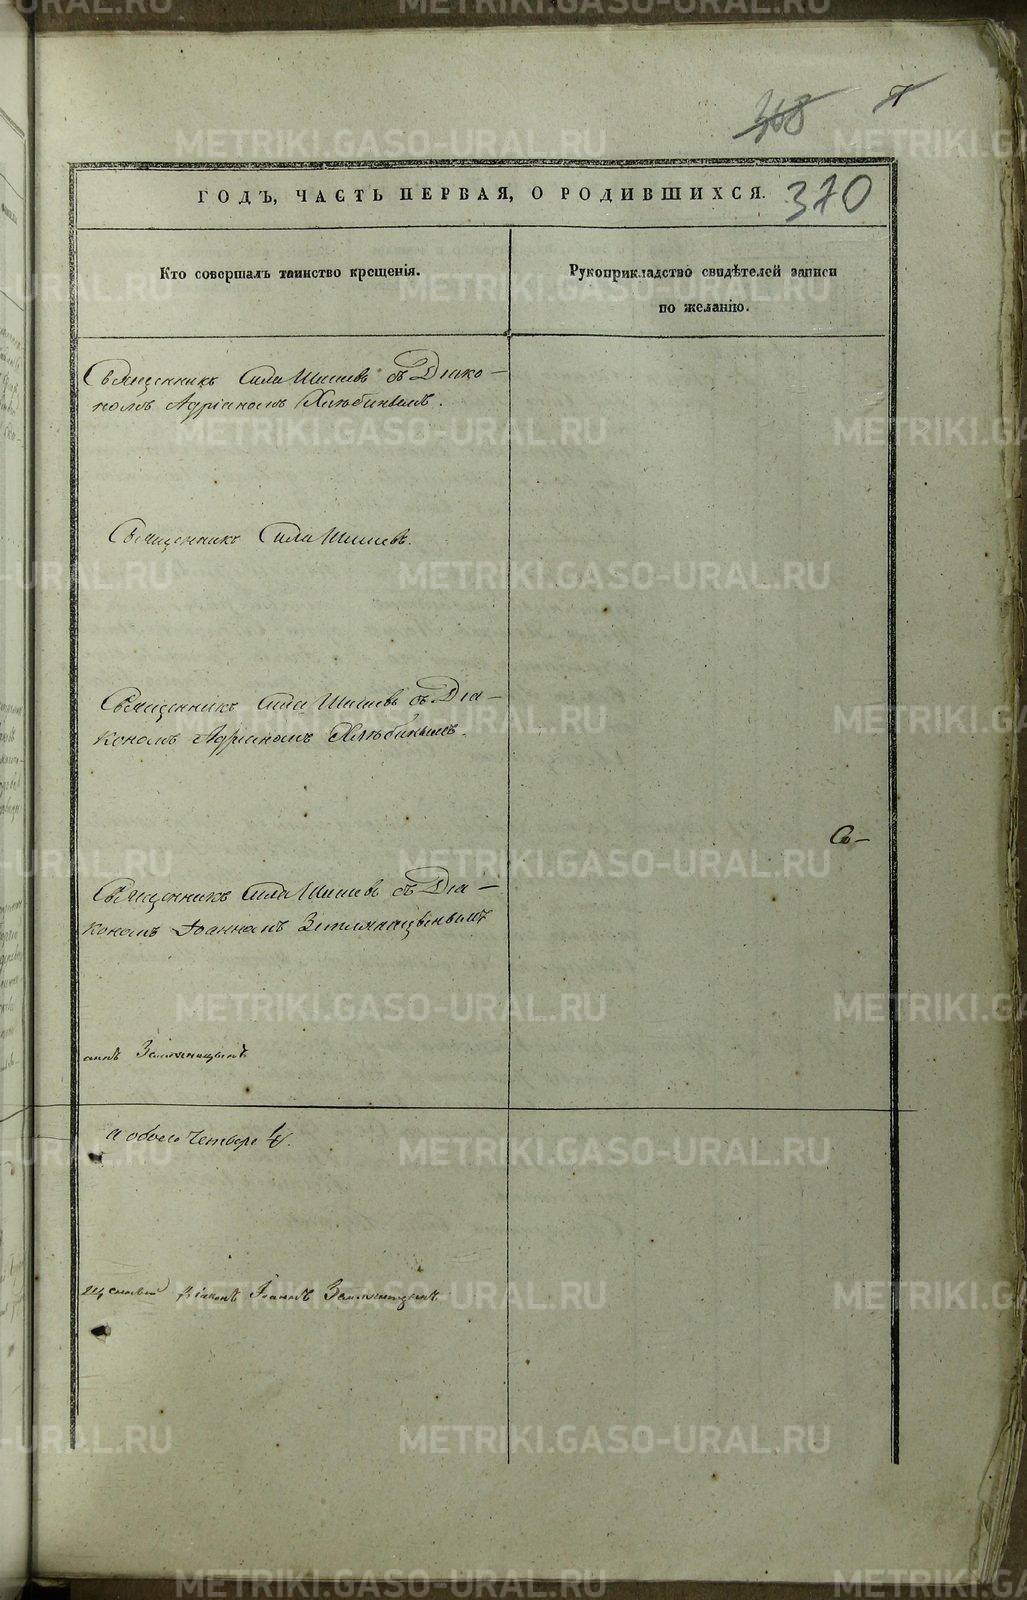 368
370
ГОДЪ, ЧАСТЬ ПЕРВАЯ, О РОДИВШИХСЯ.
Кто совершалъ таинство крещенія.
Рукоприкладство свидѣтелей записи
по желанію.
Священникъ Сила Шишевъ съ Діако-
номъ Адріаномъ Хлѣбинымъ.
Священникъ Сила Шишевъ.
Священникъ Сила Шишевъ съ Діа-
кономъ Адріаномъ Хлѣбинымъ.
Съ-
Священникъ Сила Шишевъ съ Діа-
кономъ Іоанномъ Земляницынымъ
аннъ Земляницынъ
а обоего четверо 4.
Діаконъ Іоаннъ Земляницынъ
METRIKI.GASO-URAL.RU